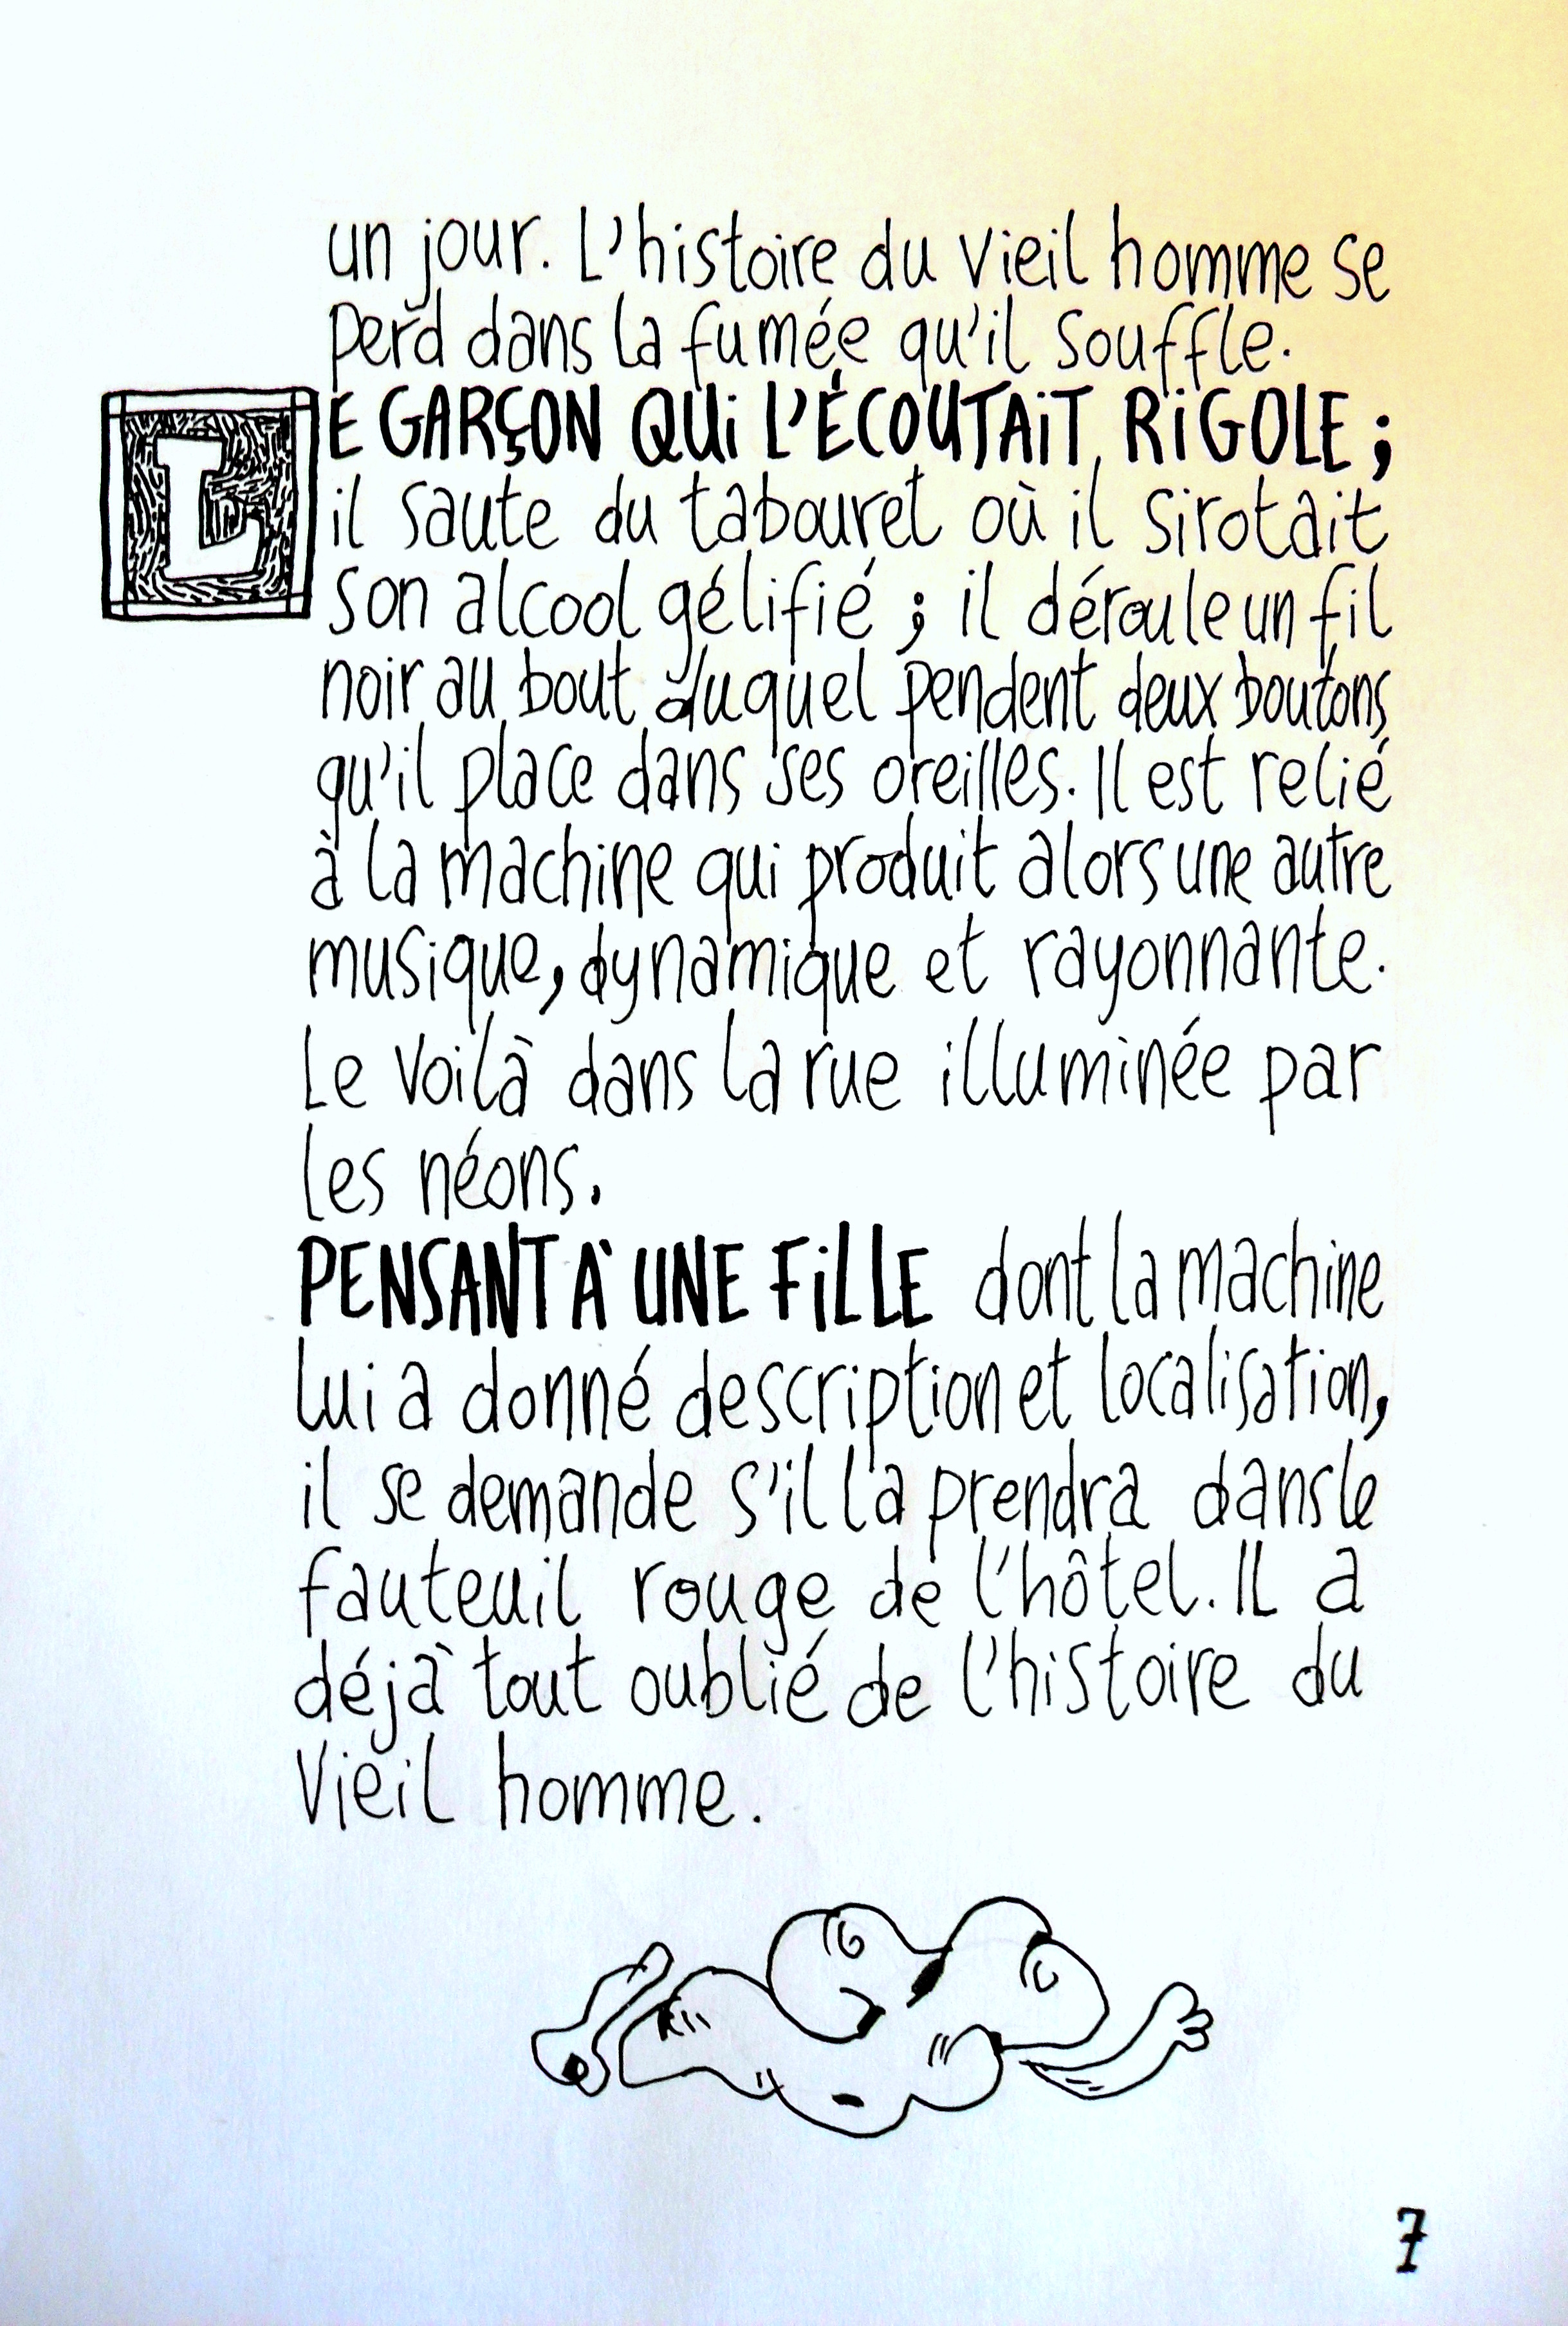 un jour. L'histoire du vieil homme se
perd dans la fumée qu'il souffle.
LE GARÇON QUI L'ÉCOUTAIT, RIGOLE ;
il saute du tabouret où il sirotait
son alcool gélifié ; il déroule un fil
noir au bout duquel pendent deux boutons
qu'il place dans ses oreilles. Il est relié
à la machine qui produit alors une autre
musique, dynamique et rayonnante.
Le voilà dans la rue illuminée par
les néons.
PENSANT À UNE FILLE dont la machine
lui a donné description et localisation,
il se demande s'il la prendra dans le
fauteuil rouge de l'hôtel. Il a
déjà tout oublié de l'histoire du
vieil homme.
7